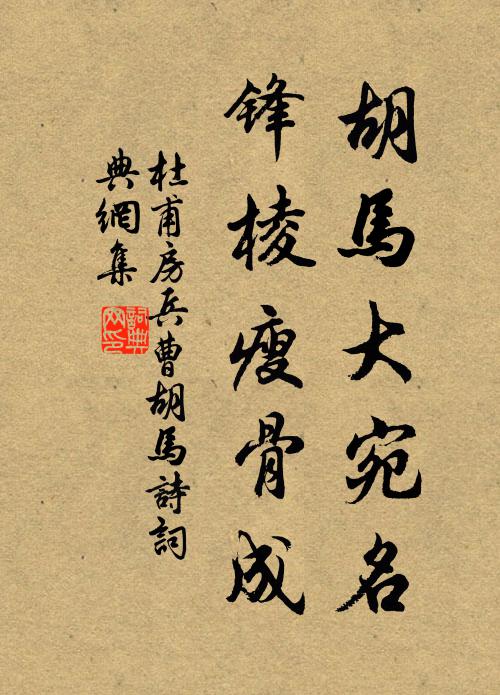 胡馬大宛名
锋棱瘦骨成
杜甫房兵曹胡馬詩詞
典網集
詞典
网印